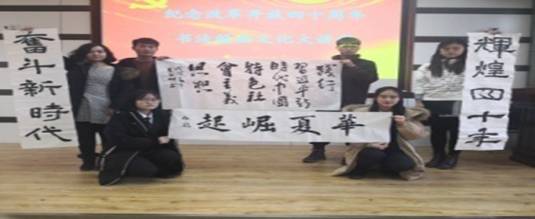 纪念改革开放四十周年
书法
文化大讲
奮斗新時代
践行
習近平新
時代中國
特色社
會主義
思想
華夏崛起
輝煌四十年